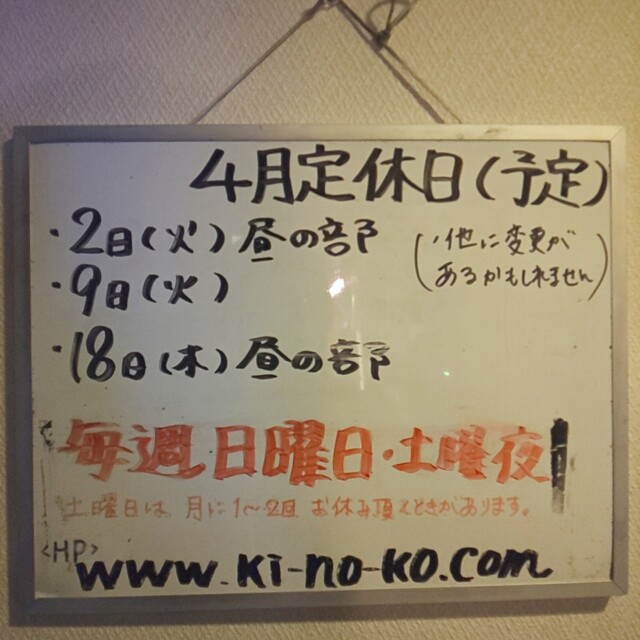 4月定休日(予定)
・2日(火)昼の部
(・他に変更が
あるかもしれません)
・9日(火)
・18日(木)昼の部
毎週日曜日・土曜夜
土曜日は、月に1〜2回 お休み頂くときがあります。
<HP>
www.ki-no-ko.com